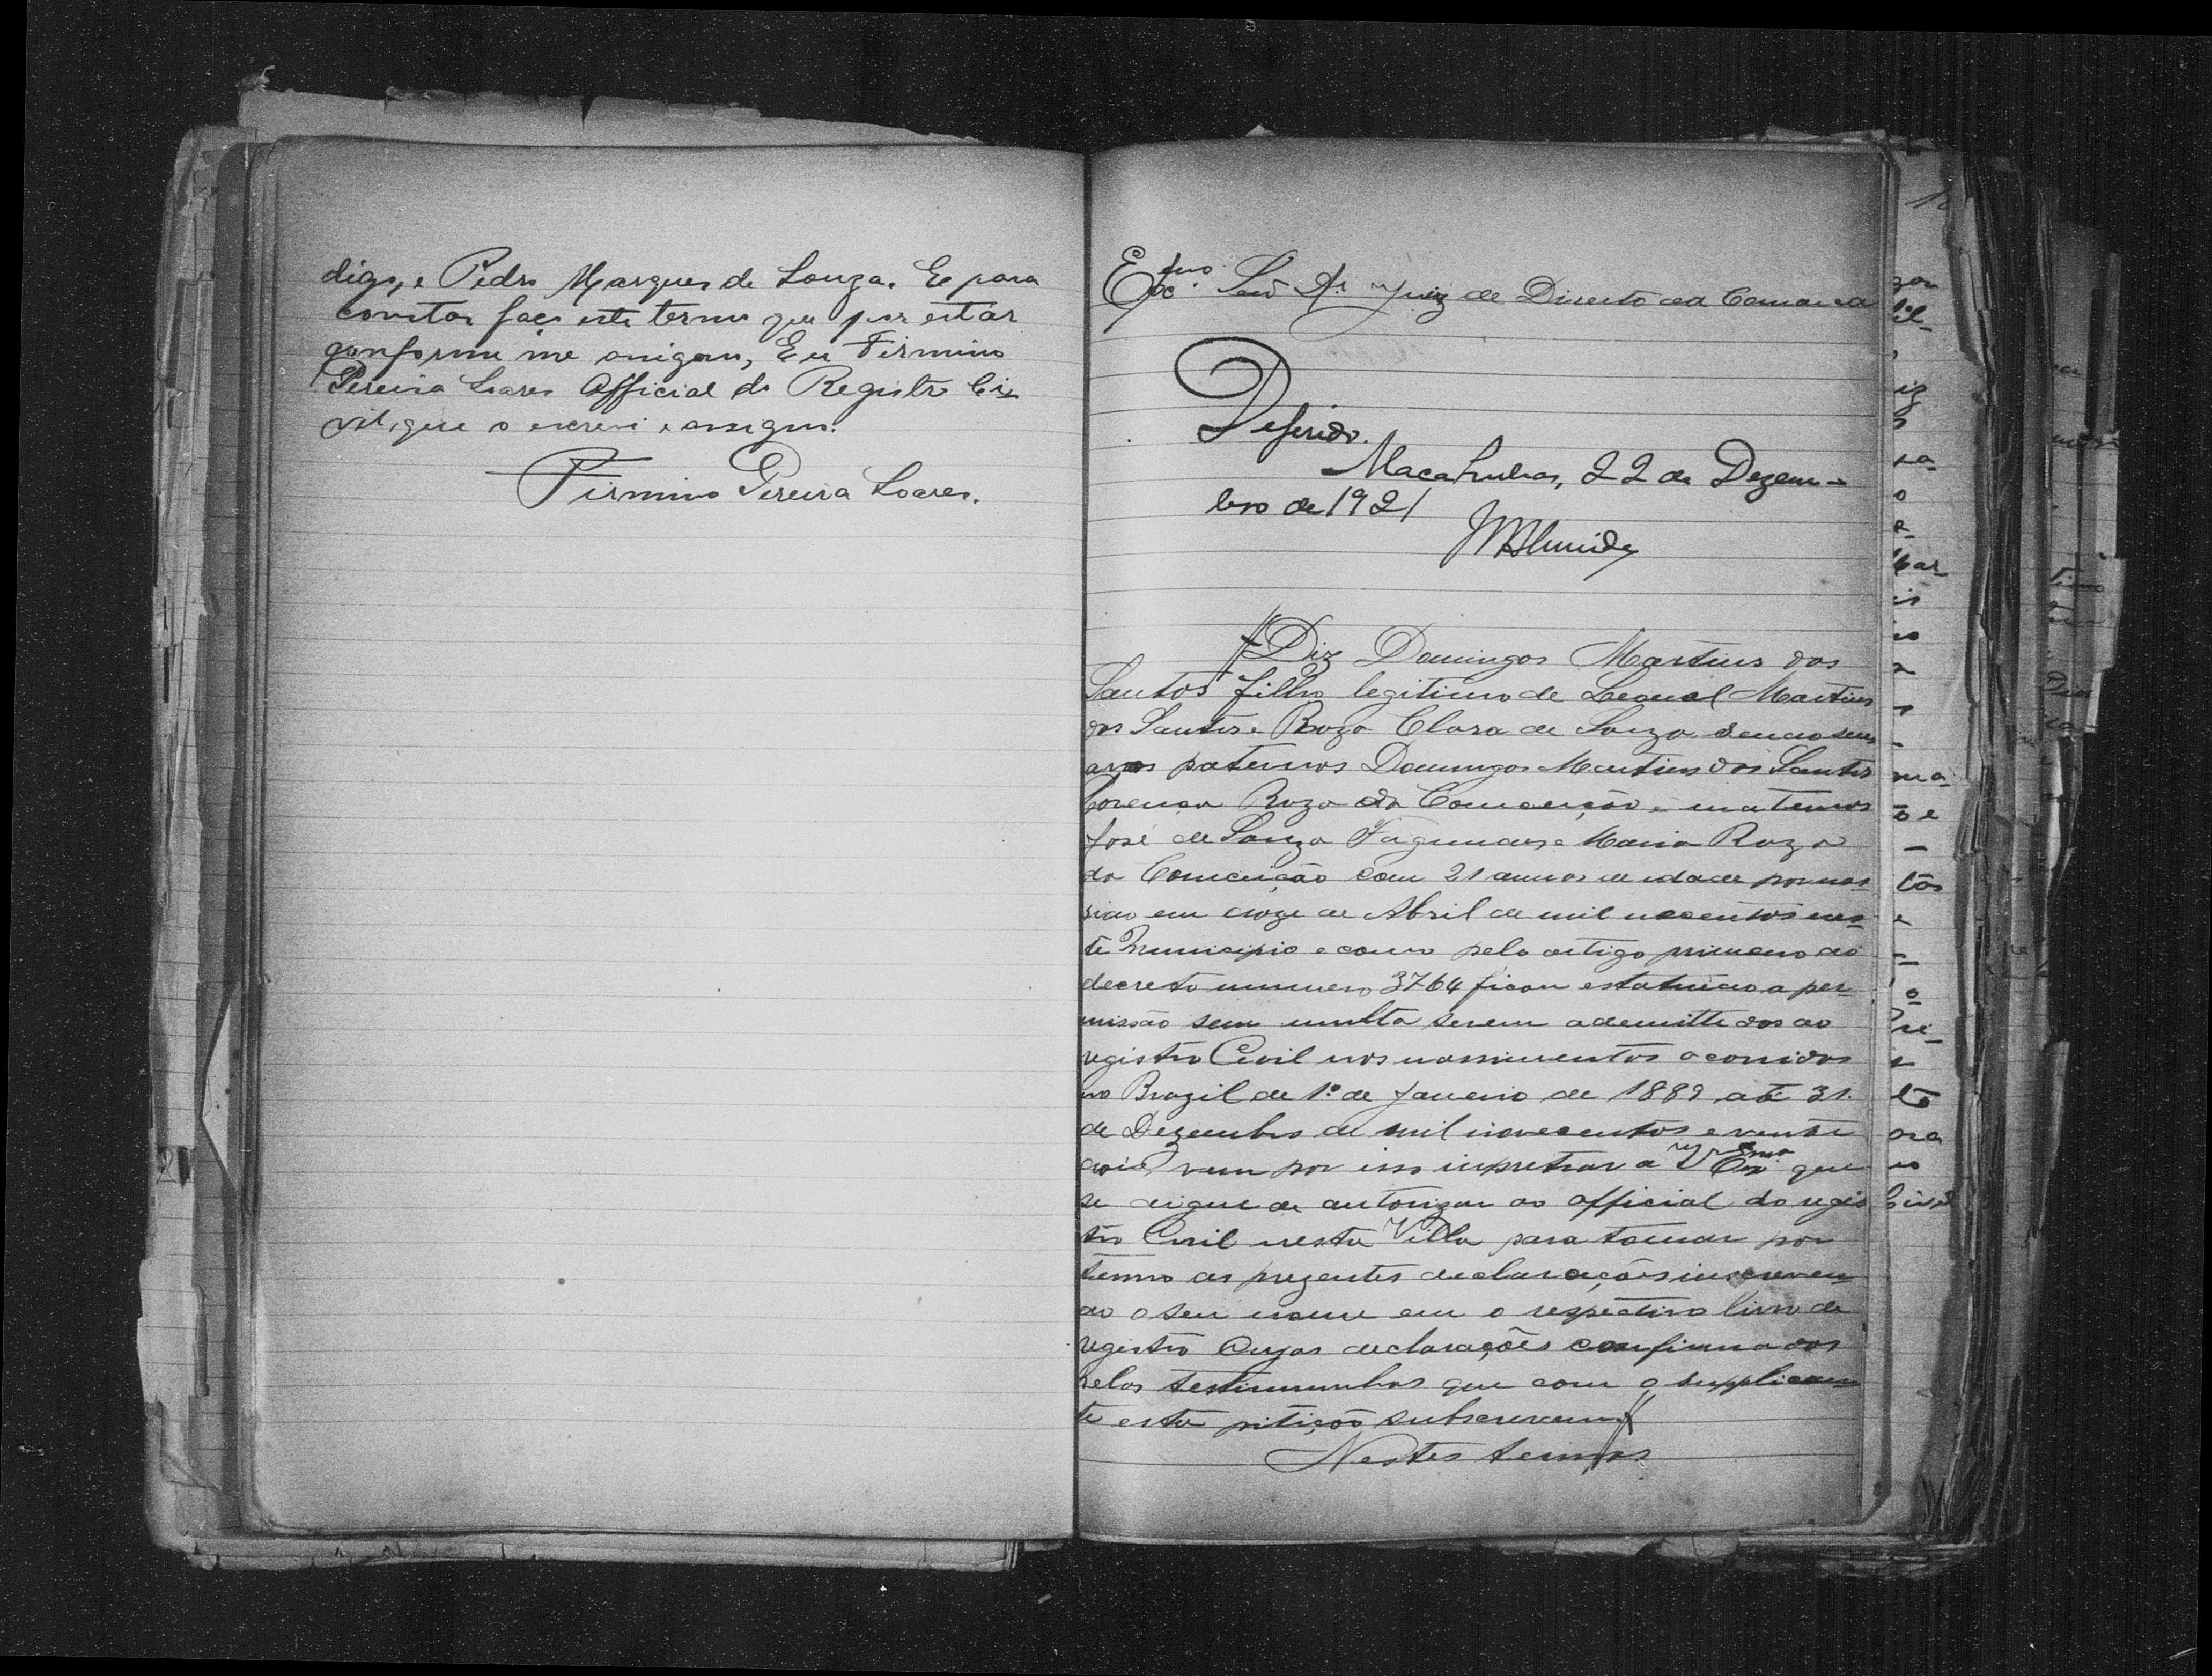 digo, e Pedro Marques de Souza. E para
constar faço este termo que por estar
conforme me assignam, Eu Firmino
Pereira Soares Official do Registro Ci-
vil, que o escrevi e assigno.
Firmino Pereira Soares.
Exmo. Senr. Dr. Juiz de Direito da Comarca
Deferido.
Macahubas, 22 de Dezem-
bro de 1921
MAlmeida
Diz Domingos Martins dos
Santos filho legitimo de Martins
dos Santos e Roza Clara de Souza sendo seus
avos paternos Domingos Martins dos Santos
Roza da Conceição e maternos
José de Souza Fagundes e Maria Roza
da Conceição com 21 annos de idade por nas-
sido em doze de Abril de mil nes-
te Municipio e como pelo artigo primeiro do
decreto numero 3764 ficou estatuido a per-
missão sem multa serem ademittidos ao
registro Civil nos nassimentos ocorridos
no Brazil de 1º de Janeiro de 1889 até 31
de Dezembro de mil novecentos e vinte
dois, vem por isso inpretrar a V Exma que
se digne de autorizar ao official do regis
tro Civil nesta Villa para tomar por
termo as prezentes declarações inscreven-
do o seu nome em o respectivo livro de
registro Cujas declarações confirmados
pelas testimunhas que com o supplican-
te esta pitição subscrevem
Nestes termos